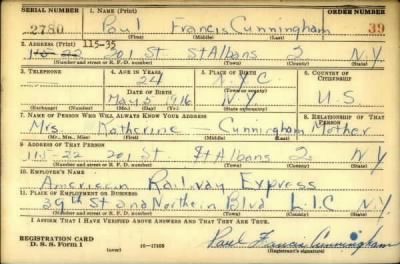 SERIAL NUMBER 1. NAME (Print) ORDER NUMBER
2780 Paul Francis Cunningham 39
(First) (Middle) (Last)
2. ADDRESS (Print) 115-35
115-22 201 St St Albans 2 N.Y.
(Number and street or R. F. D. number) (Town) (County) (State)
3. TELEPHONE 4. AGE IN YEARS 5. PLACE OF BIRTH 6. COUNTRY OF CITIZENSHIP
24 N.Y.C.
DATE OF BIRTH (Town or county)
May 5 1916 NY U S
(Exchange) (Number) (Mo.) (Day) (Yr.) (State or country)
7. NAME OF PERSON WHO WILL ALWAYS KNOW YOUR ADDRESS 8. RELATIONSHIP OF THAT PERSON
Mrs. Katherine Cunningham Mother
(Mr., Mrs., Miss) (First) (Middle) (Last)
9. ADDRESS OF THAT PERSON
115-22 201 St St Albans 2 N.Y.
(Number and street or R. F. D. number) (Town) (County) (State)
10. EMPLOYER'S NAME
American Railway Express
11. PLACE OF EMPLOYMENT OR BUSINESS
39th St and Northern Blvd L.I.C N.Y.
(Number and street or R. F. D. number) (Town) (County) (State)
I AFFIRM THAT I HAVE VERIFIED ABOVE ANSWERS AND THAT THEY ARE TRUE.
REGISTRATION CARD
D. S. S. Form 1 (over) 16-17105 Paul Francis Cunningham
(Registrant's signature)